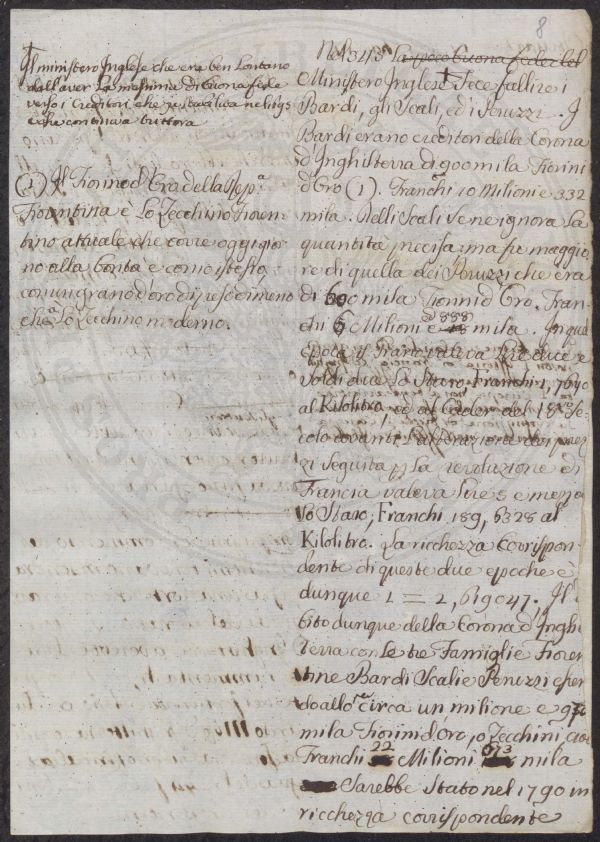 8
† Il ministero Inglese che era ben lontano
dall'aver la massima di buona fede
verso i Creditori, che
e che continua tuttora
(1) Il Fiorino d'Oro della Rep.ª
Fiorentina è lo Zecchino Fioren
tino attuale che corre oggi gior
no alla bontà e
con un grano d'oro di peso di meno
che lo Zecchino moderno.
Nel 1343 la poco buona fede del
Ministero Inglese † fece fallire i
Bardi, gli Scali, ed i Peruzzi. I
Bardi erano creditori della Corona
d'Inghilterra di 900 mila Fiorini
d'Oro (1). Franchi 10 Milioni e 332
mila. Delli Scali se ne ignora la
quantità precisa ma fu maggio
re di quella dei Peruzzi che era
di 600 mila Fiorini d'Oro. Fran
chi 6 Milioni e 888 mila. In qua
epoca il Grano valeva Lire due e
soldi due lo Staro Franchi 1,7640
al Kilolitro, ed al cader del 18.vo Se
colo avanti l'alterazione dei prez
zi seguita p. la rivoluzione di
Francia valeva Lire 5 e mezzo
lo Staro; Franchi 189, 6328 al
Kilolitro. La ricchezza corrispon
dente di queste due epoche è
dunque 1 = 2, 619047. Il
bito dunque della Corona d'Inghi
lterra con le tre Famiglie Fioren
tine Bardi Scali e Peruzzi
circa un milione e
mila Fiorini d'oro, o Zecchini cioè
Franchi 22 Milioni 673 mila
Sarebbe Stato nel 1790 in
ricchezza corrispondente